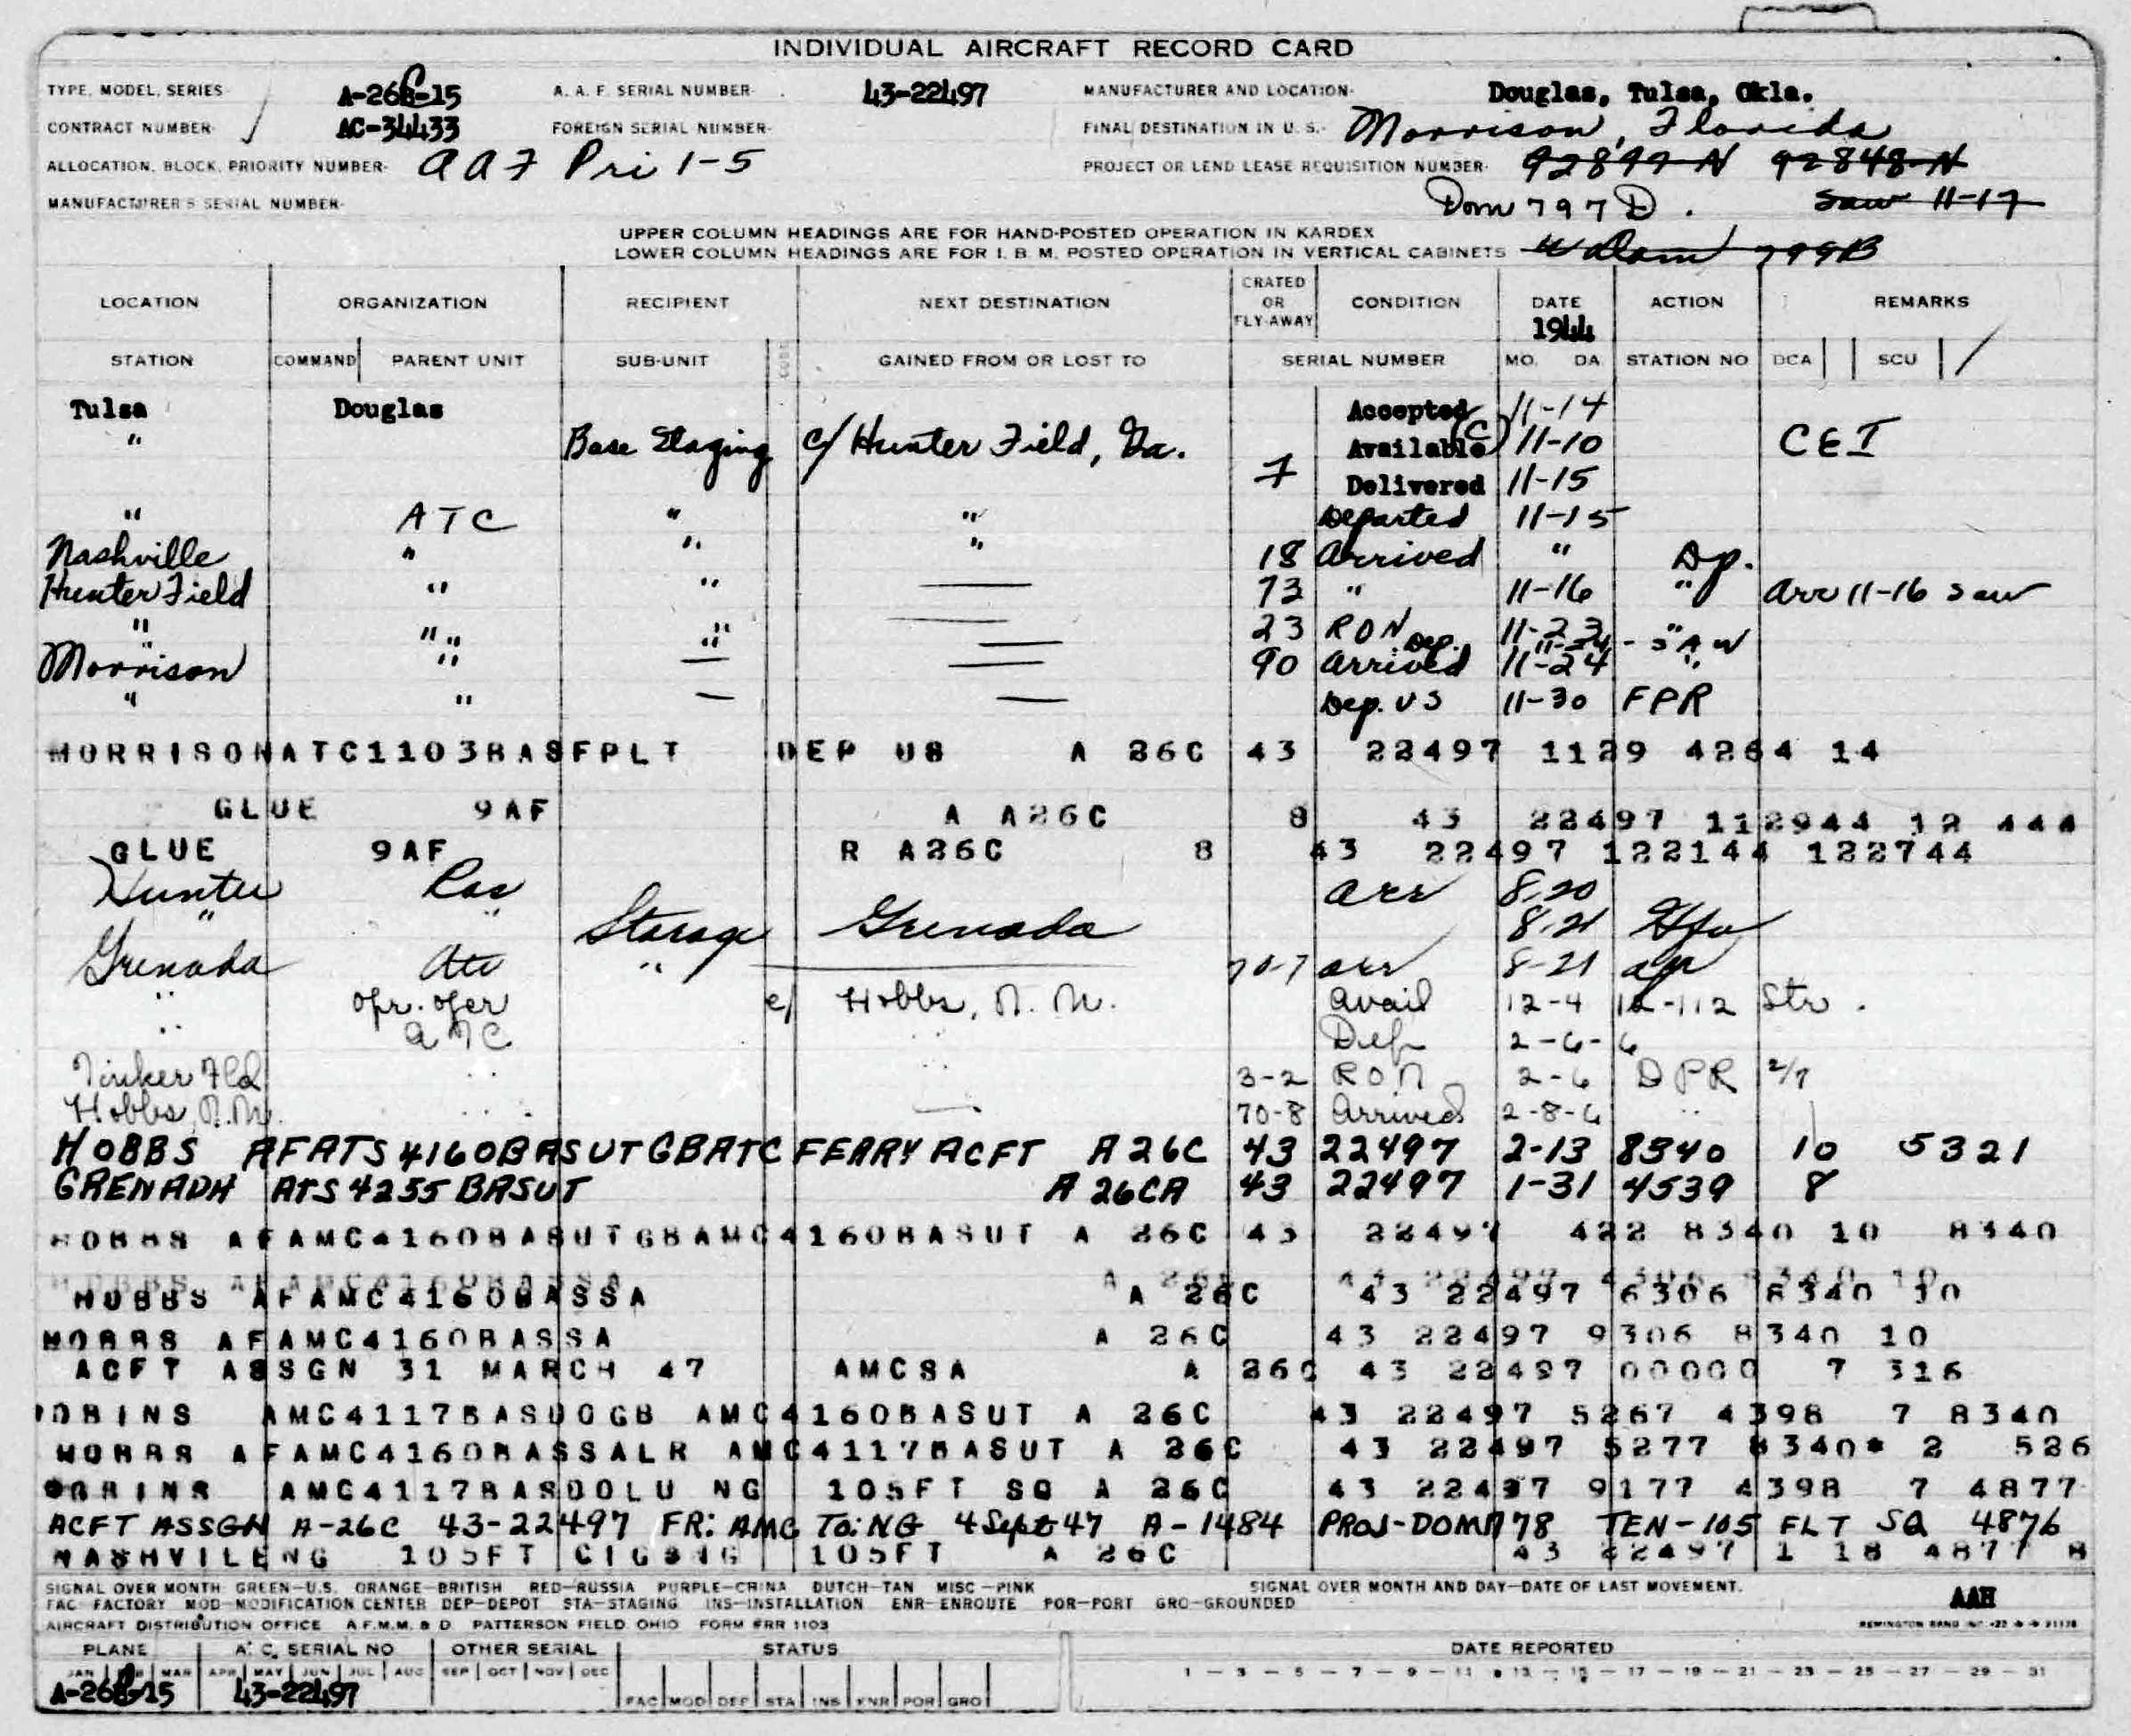 INDIVIDUAL AIRCRAFT RECORD CARD
TYPE, MODEL, SERIES- A-26C-15 A. A. F. SERIAL NUMBER- 43-22497 MANUFACTURER AND LOCATION- Douglas, Tulsa, Okla.
CONTRACT NUMBER- AC-34433 FOREIGN SERIAL NUMBER- FINAL DESTINATION IN U. S.- Morrison, Florida
ALLOCATION, BLOCK, PRIORITY NUMBER- AAF Pri 1-5 PROJECT OR LEND LEASE REQUISITION NUMBER- 92897-N 92848-N
MANUFACTURER'S SERIAL NUMBER- Dom 797D. Saw 11-17
UPPER COLUMN HEADINGS ARE FOR HAND-POSTED OPERATION IN KARDEX
LOWER COLUMN HEADINGS ARE FOR I. B. M. POSTED OPERATION IN VERTICAL CABINETS 799B
LOCATION ORGANIZATION RECIPIENT NEXT DESTINATION CRATED OR FLY-AWAY CONDITION DATE 1944 ACTION REMARKS
STATION COMMAND PARENT UNIT SUB-UNIT CODE GAINED FROM OR LOST TO SERIAL NUMBER MO. DA STATION NO DCA SCU
Tulsa Douglas Accepted 11-14
" Base Staging c/ Hunter Field, Ga. Available (C) 11-10 CEI
7 Delivered 11-15
" ATC " " Departed 11-15
Nashville " " " 18 Arrived " Dp.
Hunter Field " " — 73 " 11-16 " Arr 11-16 Saw
" " " — 23 RON 11-23 "
Dep. 11-24 - SAW
Morrison " — — 90 Arrived 11-24 "
" " — — Dep. US 11-30 FPR
MORRISON ATC1103BASFPLT DEP US A 26C 43 22497 1129 4264 14
GLUE 9AF A A26C 8 43 22497 112944 12 444
GLUE 9AF R A26C 8 43 22497 122144 122744
Hunter arr 8-20
" " Storage Grenada 8-21
Grenada " — 70-7 arr 8-21
" Opr. Ofer c/ Hobbs, N. M. Avail 12-4 12-112 Str.
" AMC " Dep 2-6-6
Tinker Fld " 3-2 RON 2-6 DPR 2/7
Hobbs, N.M. " — 70-8 Arrived 2-8-6 "
HOBBS AFATS4160BASUTGBATC FERRY ACFT A26C 43 22497 2-13 8340 10 5321
GRENADA ATS4255BASUT A 26CA 43 22497 1-31 4539 8
HOBBS AFAMC4160BASUTGBAMC4160BASUT A 26C 43 22497 422 8340 10 8340
HOBBS AFAMC4160BASSA A 26C 43 22497 6306 8340 10
HOBBS AFAMC4160BASSA A 26C 43 22497 9306 8340 10
ACFT ASSGN 31 MARCH 47 AMCSA A 26C 43 22497 00000 7 316
ROBINS AMC4117BASUOGB AMC4160BASUT A 26C 43 22497 5267 4398 7 8340
HOBBS AFAMC4160BASSALR AMC4117BASUT A 26C 43 22497 5277 8340* 2 526
ROBINS AMC4117BASDOLU NG 105FT SQ A 26C 43 22497 9177 4398 7 4877
ACFT ASSGN A-26C 43-22497 FR: AMC TO: NG 4 Sept 47 A-1484 PROJ-DOM 78 TEN-105 FLT SQ 4876
NASHVILENG 105FT 105FT A 26C 43 22497 1 18 4877 8
SIGNAL OVER MONTH GREEN—U.S. ORANGE—BRITISH RED—RUSSIA PURPLE—CHINA DUTCH—TAN MISC—PINK SIGNAL OVER MONTH AND DAY—DATE OF LAST MOVEMENT.
FAC FACTORY MOD-MODIFICATION CENTER DEP-DEPOT STA-STAGING INS-INSTALLATION ENR-ENROUTE POR-PORT GRO-GROUNDED AAH
AIRCRAFT DISTRIBUTION OFFICE A.F.M.M. & D PATTERSON FIELD OHIO FORM #RR 1103 REMINGTON RAND INC
PLANE A. C. SERIAL NO OTHER SERIAL STATUS DATE REPORTED
JAN FEB MAR APR MAY JUN JUL AUG SEP OCT NOV DEC 1 — 3 — 5 — 7 — 9 — 11 • 13 — 15 — 17 — 19 — 21 — 23 — 25 — 27 — 29 — 31
A-26C-15 43-22497 FAC MOD DEP STA INS ENR POR GRO